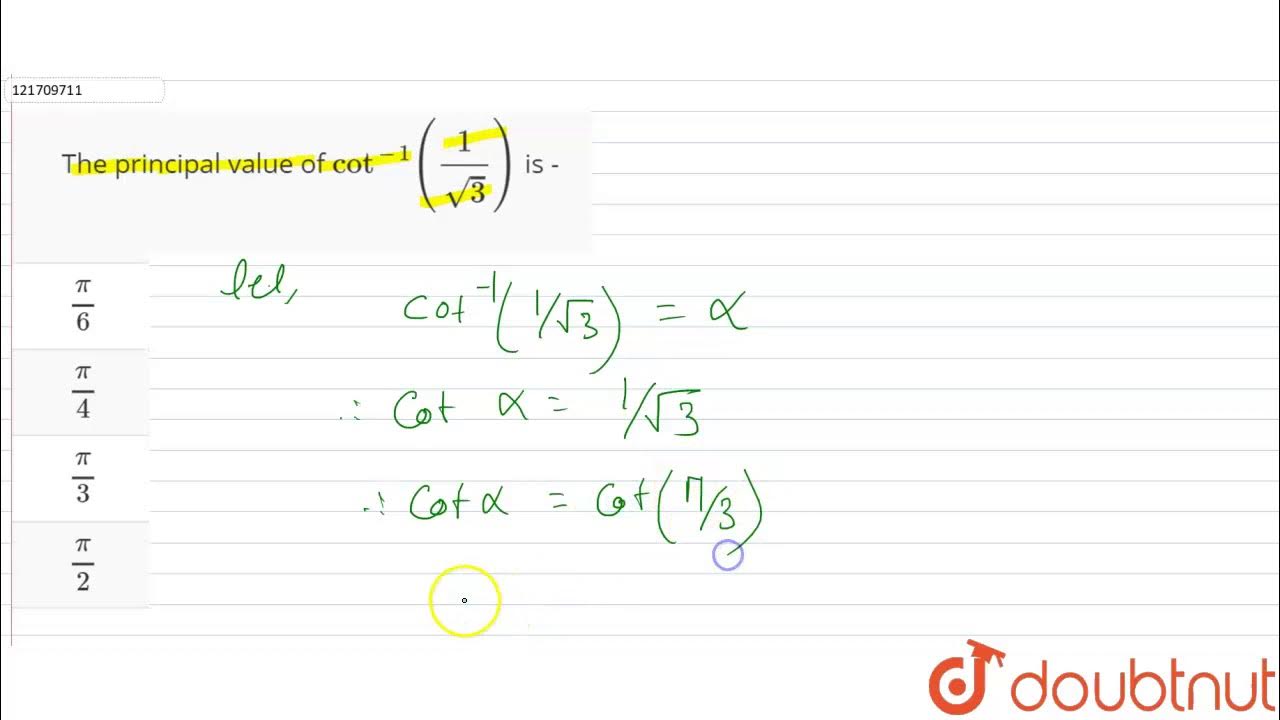 121709711
The principal value of cot⁻¹(1/√3) is -
π/6
π/4
π/3
π/2
let,
cot⁻¹(1/√3) = α
∴ Cot α = 1/√3
∴ Cot α = Cot(π/3)
doubtnut